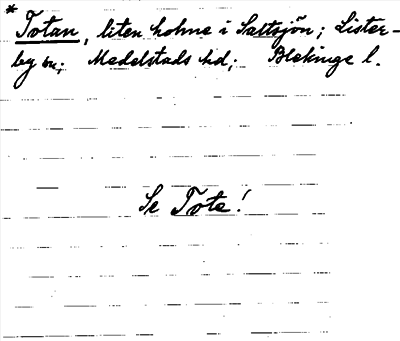 * Totan, liten holme i Saltsjön; Lister-
by sn; Medelstads hd; Blekinge l.
Se Tote!